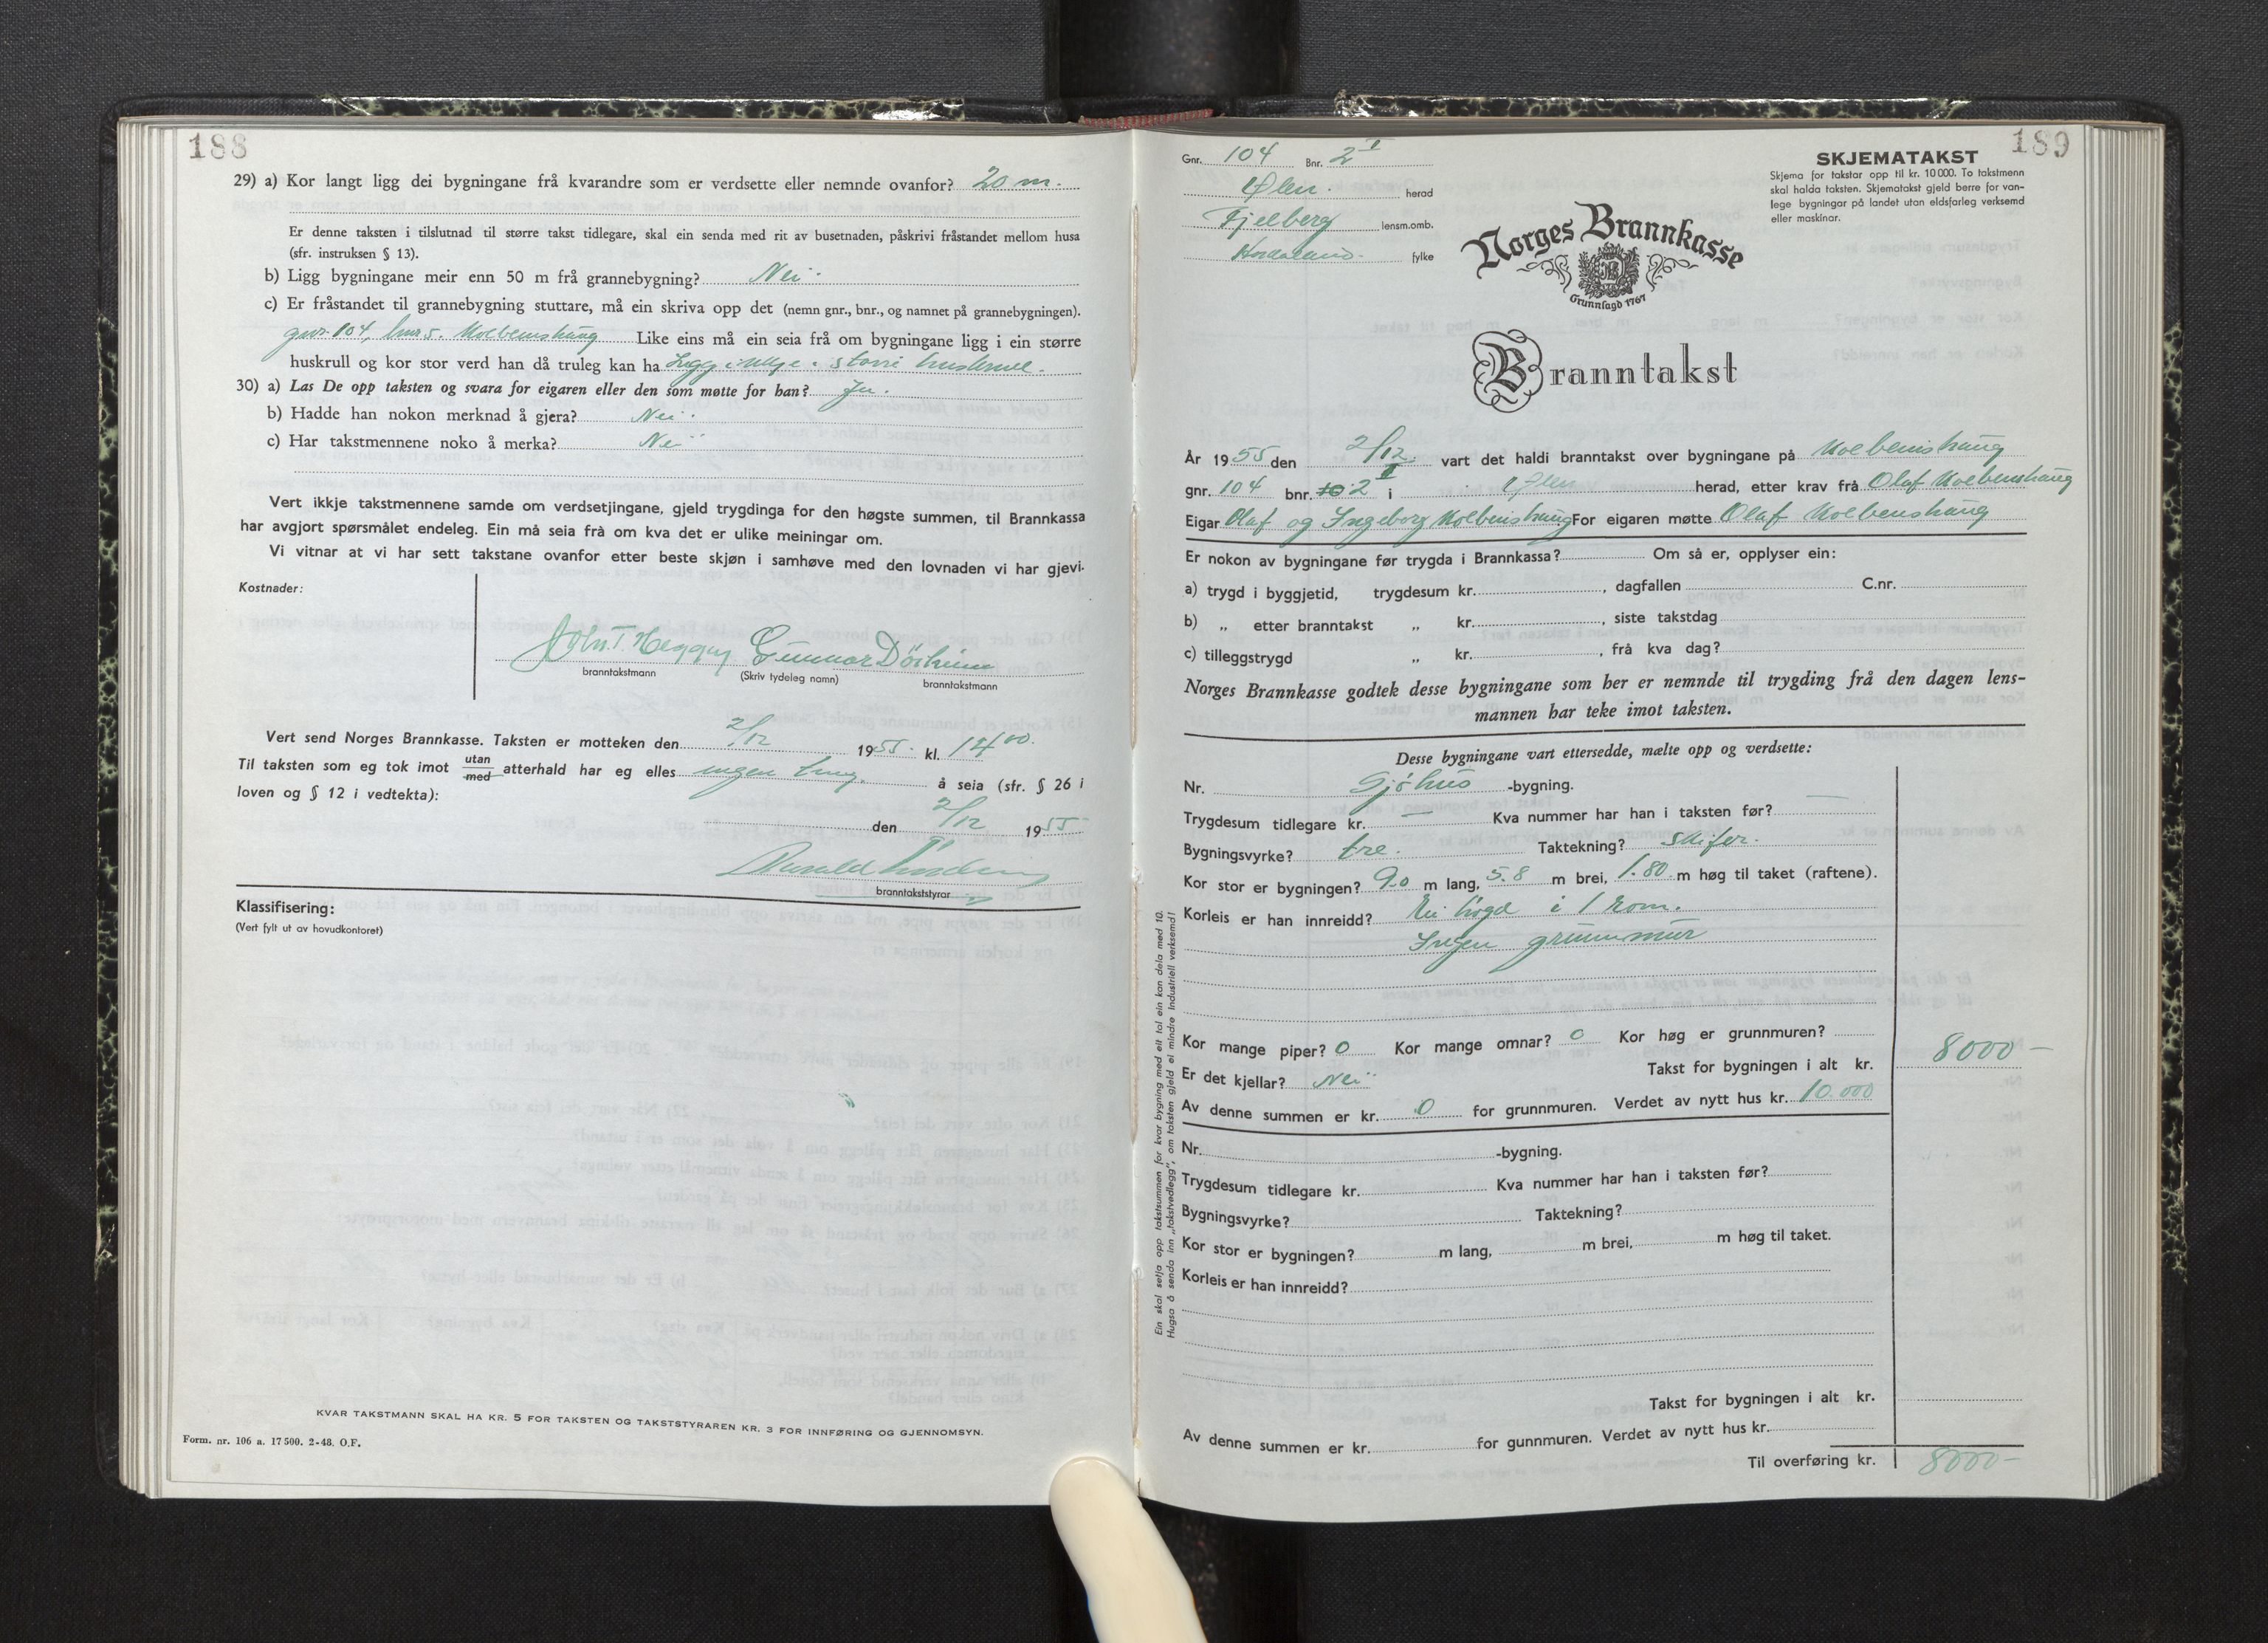 188
29) a) Kor langt ligg dei bygningane frå kvarandre som er verdsette eller nemnde ovanfor? 20 m.
Er denne taksten i tilslutnad til større takst tidlegare, skal ein senda med rit av busetnaden, påskrivi fråstandet mellom husa
(sfr. instruksen § 13).
b) Ligg bygningane meir enn 50 m frå grannebygning? Nei
c) Er fråstandet til grannebygning stuttare, må ein skriva opp det (nemn gnr., bnr., og namnet på grannebygningen).
gnr. 104, bnr 5. Kolbeinshaug Like eins må ein seia frå om bygningane ligg i ein større
huskrull og kor stor verd han då truleg kan ha Ligg ikkje i større huskrull.
30) a) Las De opp taksten og svara for eigaren eller den som møtte for han? Ja.
b) Hadde han nokon merknad å gjera? Nei
c) Har takstmennene noko å merka? Nei
Vert ikkje takstmennene samde om verdsetjingane, gjeld trygdinga for den høgste summen, til Brannkassa
har avgjort spørsmålet endeleg. Ein må seia frå om kva det er ulike meiningar om.
Vi vitnar at vi har sett takstane ovanfor etter beste skjøn i samhøve med den lovnaden vi har gjevi.
Kostnader:
John T. Gunnar
branntakstmann (Skriv tydeleg namn) branntakstmann
Vert send Norges Brannkasse. Taksten er motteken den 2/12 1955. kl. 14 00.
Til taksten som eg tok imot utan/med atterhald har eg elles ingen ting å seia (sfr. § 26 i
loven og § 12 i vedtekta):
den 2/12 1955
Harald
branntakststyrar
Klassifisering:
(Vert fylt ut av hovudkontoret)
KVAR TAKSTMANN SKAL HA KR. 5 FOR TAKSTEN OG TAKSTSTYRAREN KR. 3 FOR INNFØRING OG GJENNOMSYN.
Form. nr. 106 a. 17500. 2-48. O.F.
189
Gnr. 104 Bnr. 2 I
Ølen. herad
Fjelberg lensm.omb.
Hordaland. fylke
SKJEMATAKST
Skjema for takstar opp til kr. 10 000. To takstmenn
skal halda taksten. Skjematakst gjeld berre for van-
lege bygningar på landet utan eldsfarleg verksemd
eller maskinar.
Norges Brannkasse
Grunnlagd 1767
Branntakst
År 1955 den 2/12. vart det haldi branntakst over bygningane på Kolbeinshaug
gnr. 104 bnr. 2 I i Ølen herad, etter krav frå Olaf Kolbeinshaug
Eigar Olaf og Ingeborg Kolbeinshaug For eigaren møtte Olaf Kolbeinshaug
Er nokon av bygningane før trygda i Brannkassa? Om så er, opplyser ein:
a) trygd i byggjetid, trygdesum kr. , dagfallen C.nr.
b) „ etter branntakst „ kr. , siste takstdag
c) tilleggstrygd „ kr. , frå kva dag?
Norges Brannkasse godtek desse bygningane som her er nemnde til trygding frå den dagen lens-
mannen har teke imot taksten.
Desse bygningane vart ettersedde, mælte opp og verdsette:
Nr. Sjøhus -bygning.
Trygdesum tidlegare kr. — Kva nummer har han i taksten før? —
Bygningsvyrke? tre. Taktekning? skifer.
Kor stor er bygningen? 9.0 m lang, 5.8 m brei, 1.80 m høg til taket (raftene).
Korleis er han innreidd? Ei høgd i 1 rom.
Ingen grunnmur
Kor mange piper? 0 Kor mange omnar? 0 Kor høg er grunnmuren?
Er det kjellar? Nei Takst for bygningen i alt kr. 8000 —
Av denne summen er kr. 0 for grunnmuren. Verdet av nytt hus kr. 10.000
Nr. -bygning.
Trygdesum tidlegare kr. Kva nummer har han i taksten før?
Bygningsvyrke? Taktekning?
Kor stor er bygningen? m lang, m brei, m høg til taket.
Korleis er han innreidd?
Takst for bygningen i alt kr.
Av denne summen er kr. for gunnmuren. Verdet av nytt hus kr.
Til overføring kr. 8000 -
Ein skal setja opp takstsummen for kvar bygning med eit tal ein kan dela med 10.
Hugsa å senda inn „takstvedlegg", om taksten gjeld ei mindre industriell verksemd!